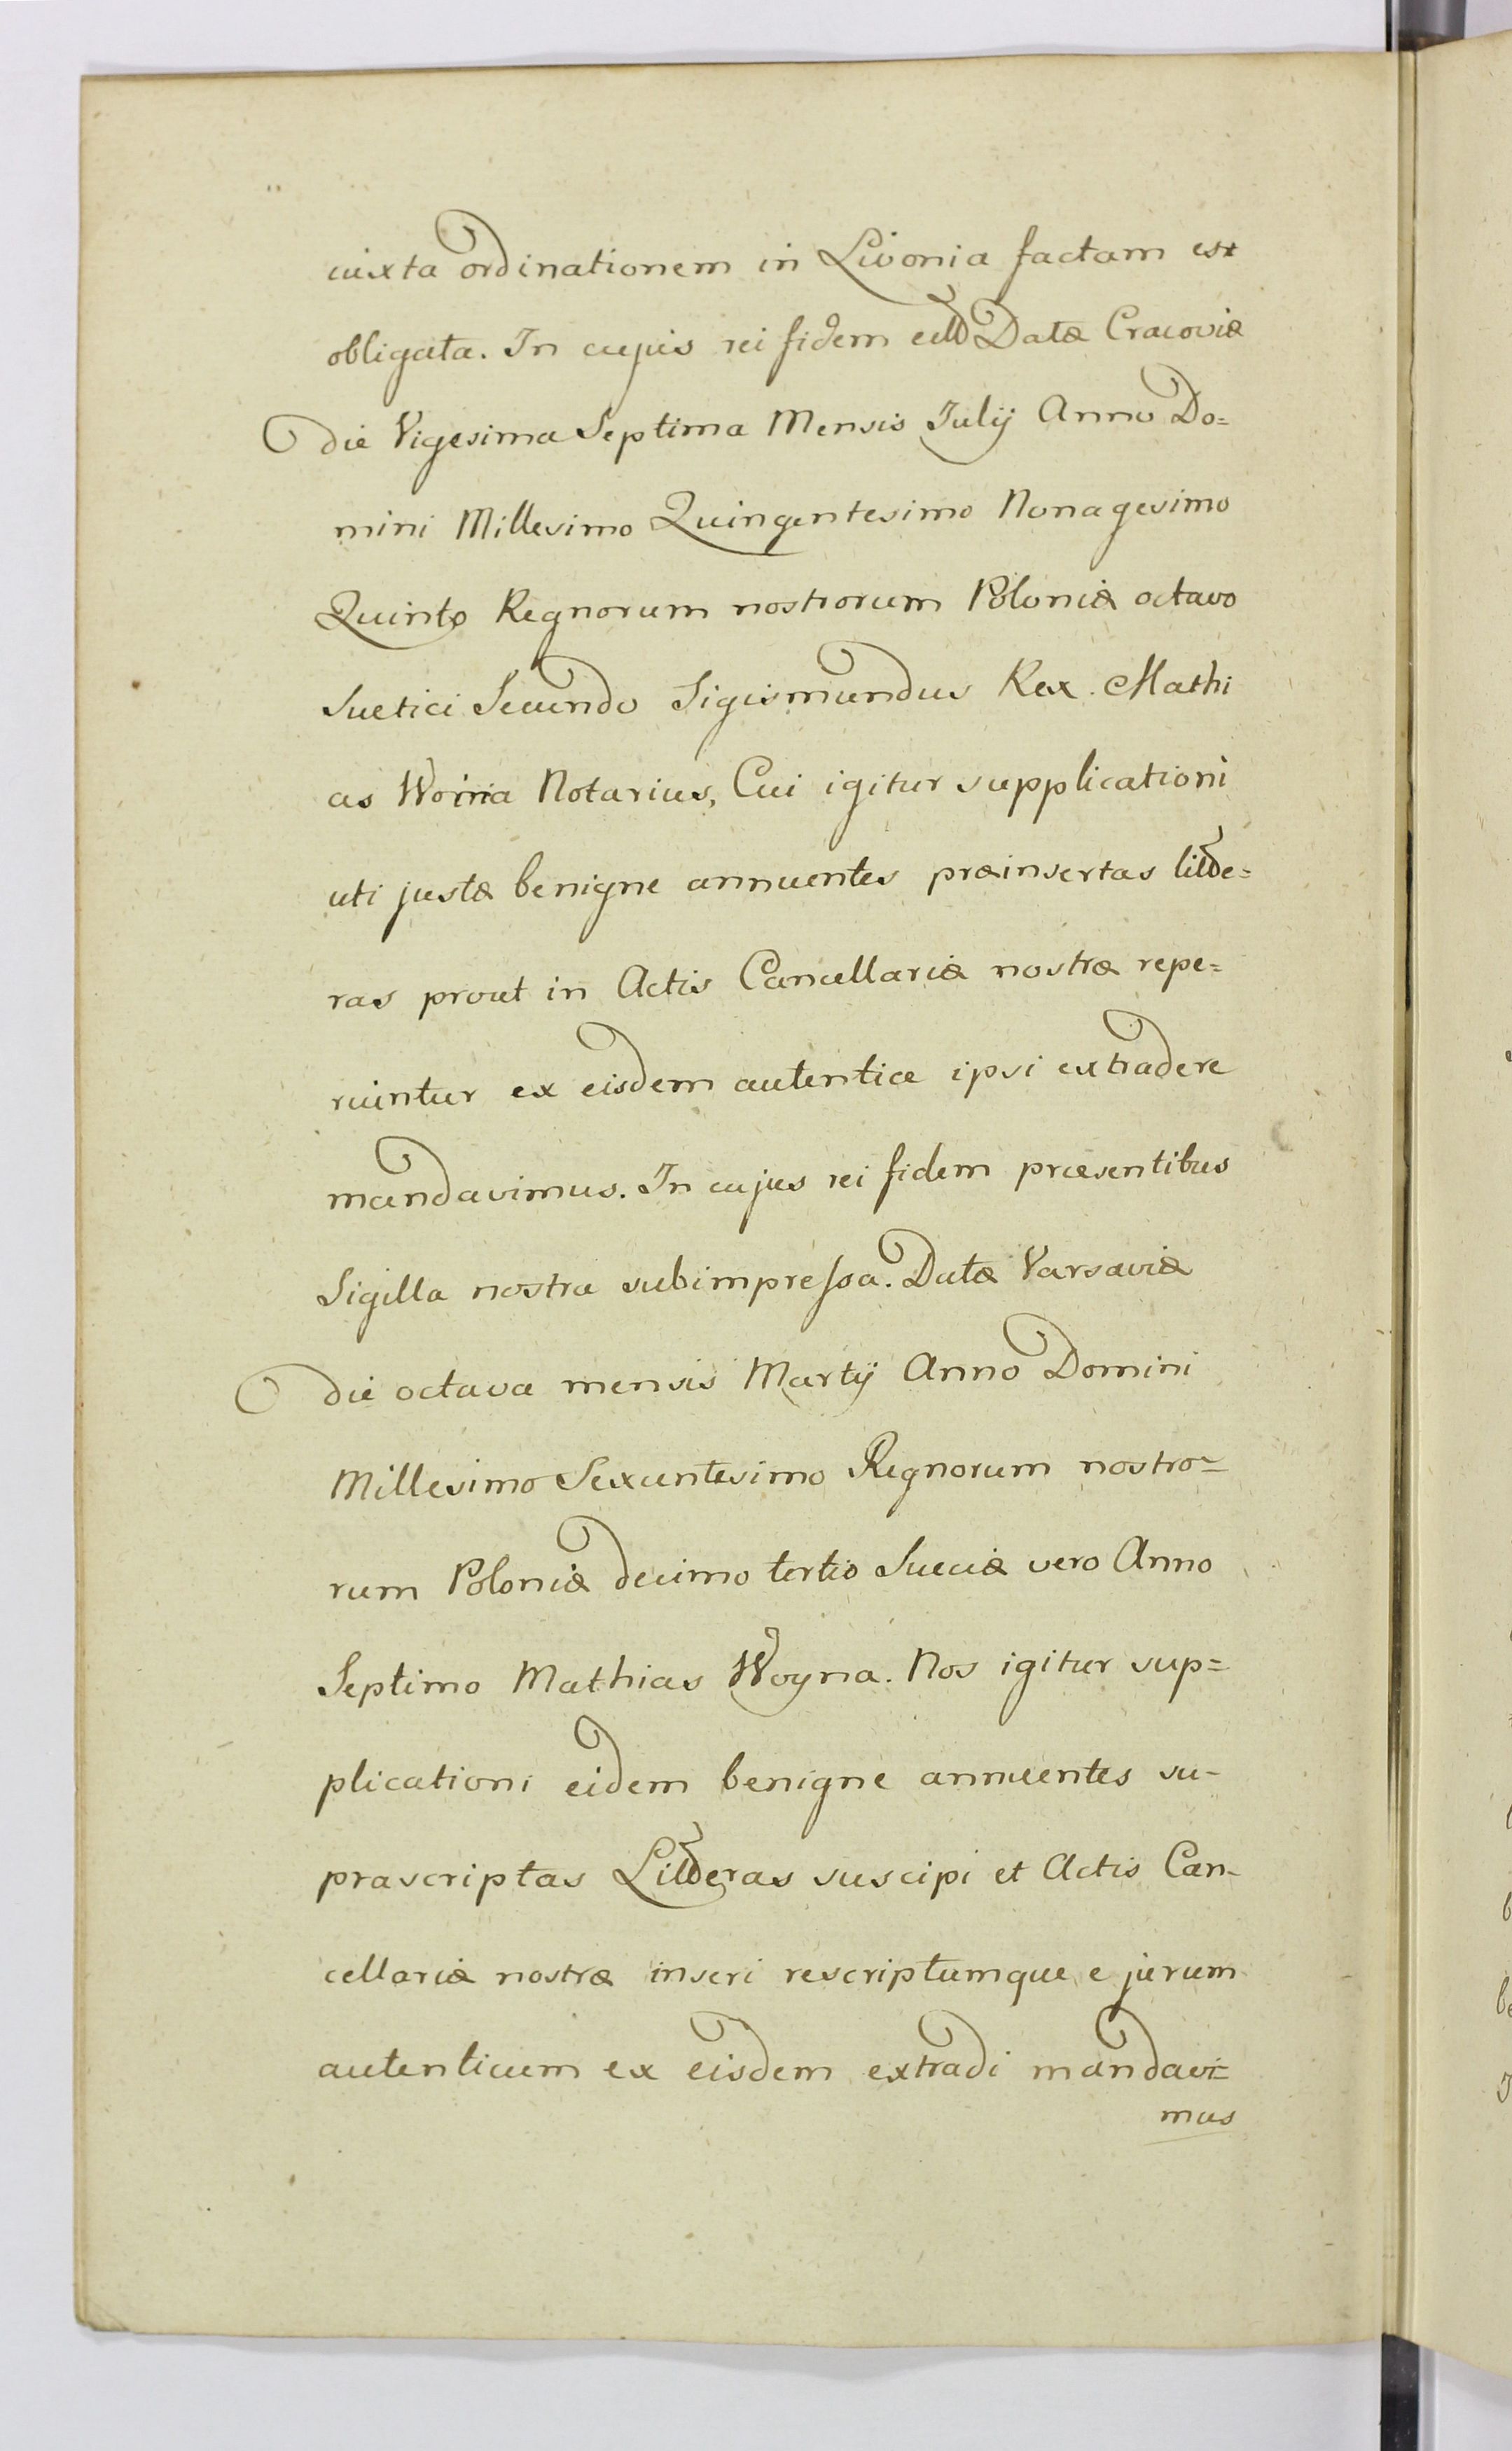 iuxta ordinationem in Livonia factam est
obligata. In cujus rei fidem Datæ Cracoviæ
die Vigesima Septima Mensis Julij Anno Do=
mini Millesimo Quingentesimo Nonagesimo
Quinto Regnorum nostrorum Poloniæ octavo
Suetici Secundo Sigismundus Rex. Mathi
as Woina Notarius, Cui igitur supplicationi
uti justæ benigne annuentes præinsertas litte=
ras prout in Actis Cancellariæ nostræ repe=
riuntur ex eisdem autentice ipsi extradere
mandavimus. In cujus rei fidem præsentibus
Sigilla nostra subimpressa. Datæ Varsaviæ
die octava mensis Martij Anno Domini
Millesimo Sexcentesimo Regnorum nostro=
rum Poloniæ decimo tertio Sueciæ vero Anno
Septimo Mathias Woyna. Nos igitur sup=
plicationi eidem benigne annuentes su-
prascriptas Litteras suscipi et Actis Can-
cellariæ nostræ inseri rescriptumque ejurum
autenticum ex eisdem extradi mandavi=
mus